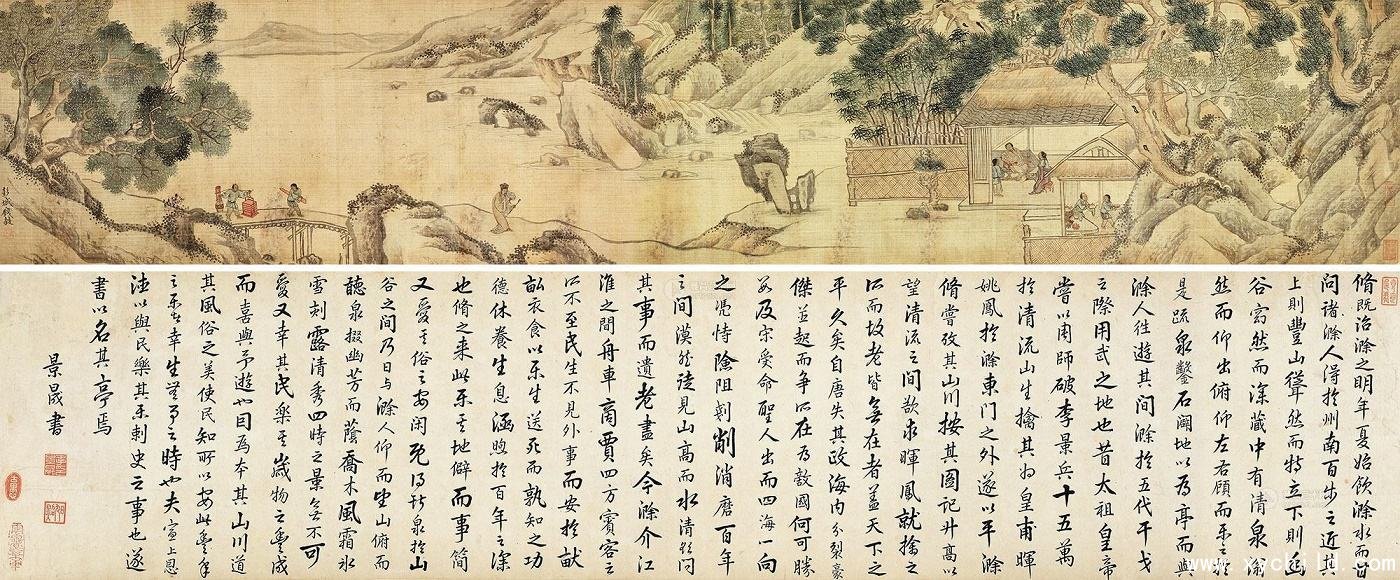 脩既治滁之明年夏始飲滁水而甘
問諸滁人得扵州南百步之近其
上則豐山聳然而特立下則幽
谷窈然而深藏中有清泉滃
然而仰出俯仰左右顧而樂之扵
是疏泉鑿石闢地以為亭而與
滁人往遊其間滁扵五代干戈
之際用武之地也昔太祖皇帝
嘗以周師破李景兵十五萬
扵清流山生擒其將皇甫暉
姚鳳扵滁東門之外遂以平滁
脩嘗攷其山川按其圖記升高以
望清流之間欲求暉鳳就擒之
所而故老皆無在者蓋天下之
平久矣自唐失其政海内分裂豪
傑並起而爭所在為敵國何可勝
數及宋受命聖人出而四海一向
之憑恃險阻剗削消磨百年
之間漠然徒見山高而水清欲問
其事而遺老盡矣今滁介江
淮之間舟車商賈四方賓客之
所不至民生不見外事而安扵畎
畝衣食以樂生送死而孰知之功
德休養生息涵煦扵百年之深
也脩之来此樂其地僻而事簡
又愛其俗之安閒既得斯泉扵山
谷之間乃日與滁人仰而望山俯而
聽泉掇幽芳而蔭喬木風霜氷
雪刻露清秀四時之景無不可
愛又幸其民樂其歲物之豐成
而喜與予遊也因為本其山川道
其風俗之美使民知所以安此豐年
之樂者幸生無事之時也夫宣上恩
德以與民樂其樂刺史之事也遂
書以名其亭焉
景晟書